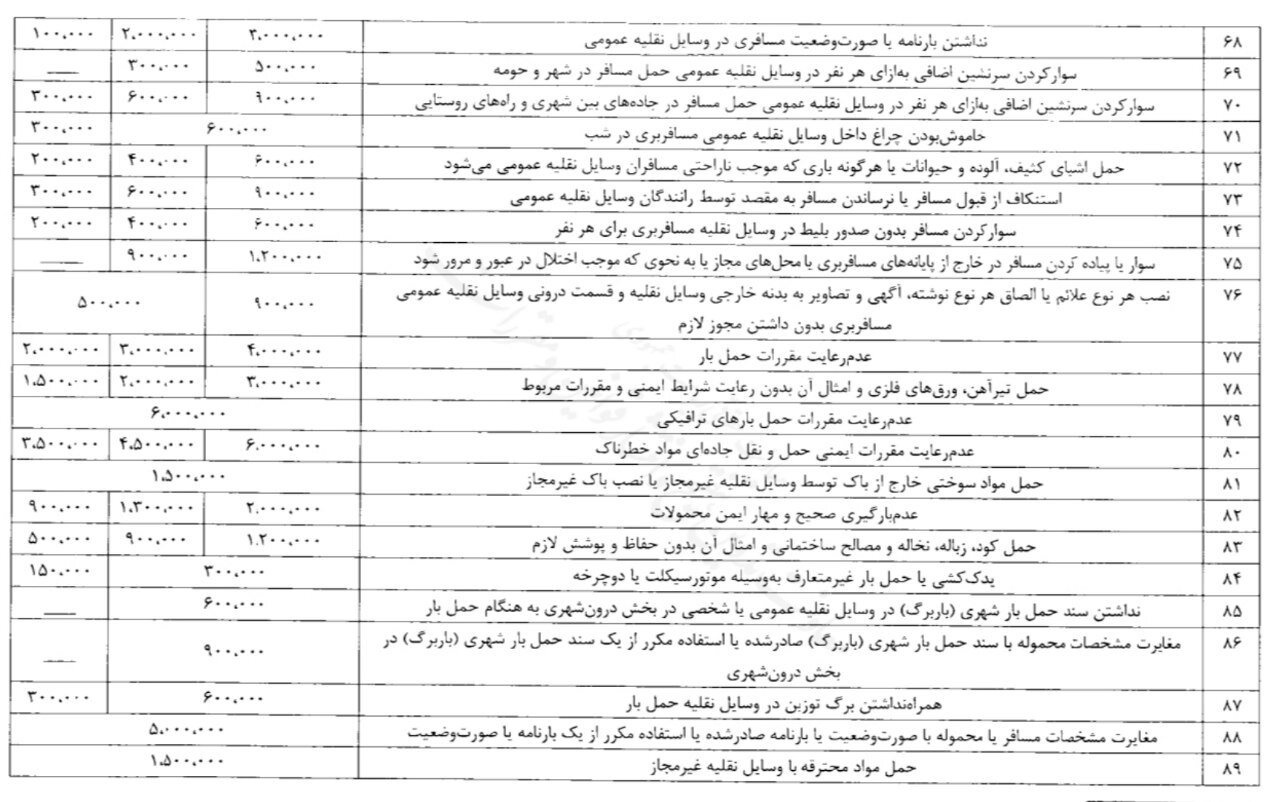 ۶۸ نداشتن بارنامه یا صورت‌وضعیت مسافری در وسایل نقلیه عمومی ۳،۰۰۰،۰۰۰ ۲،۰۰۰،۰۰۰ ۱۰۰،۰۰۰
۶۹ سوارکردن سرنشین اضافی به‌ازای هر نفر در وسایل نقلیه عمومی حمل مسافر در شهر و حومه ۵۰۰،۰۰۰ ۳۰۰،۰۰۰ ___
۷۰ سوارکردن سرنشین اضافی به‌ازای هر نفر در وسایل نقلیه عمومی حمل مسافر در جاده‌های بین شهری و راه‌های روستایی ۹۰۰،۰۰۰ ۶۰۰،۰۰۰ ۳۰۰،۰۰۰
۷۱ خاموش‌بودن چراغ داخل وسایل نقلیه عمومی مسافربری در شب ۶۰۰،۰۰۰ ۳۰۰،۰۰۰
۷۲ حمل اشیای کثیف، آلوده و حیوانات یا هرگونه باری که موجب ناراحتی مسافران وسایل نقلیه عمومی می‌شود ۶۰۰،۰۰۰ ۴۰۰،۰۰۰ ۲۰۰،۰۰۰
۷۳ استنکاف از قبول مسافر یا نرساندن مسافر به مقصد توسط رانندگان وسایل نقلیه عمومی ۹۰۰،۰۰۰ ۶۰۰،۰۰۰ ۳۰۰،۰۰۰
۷۴ سوارکردن مسافر بدون صدور بلیط در وسایل نقلیه مسافربری برای هر نفر ۶۰۰،۰۰۰ ۴۰۰،۰۰۰ ۲۰۰،۰۰۰
۷۵ سوار یا پیاده کردن مسافر در خارج از پایانه‌های مسافربری یا محل‌های مجاز یا به نحوی که موجب اختلال در عبور و مرور شود ۱،۲۰۰،۰۰۰ ۹۰۰،۰۰۰ ___
۷۶ نصب هر نوع علائم یا الصاق هر نوع نوشته، آگهی و تصاویر به بدنه خارجی وسایل نقلیه و قسمت درونی وسایل نقلیه عمومی ۹۰۰،۰۰۰ ۵۰۰،۰۰۰
مسافربری بدون داشتن مجوز لازم
۷۷ عدم‌رعایت مقررات حمل بار ۴،۰۰۰،۰۰۰ ۳،۰۰۰،۰۰۰ ۲،۰۰۰،۰۰۰
۷۸ حمل تیرآهن، ورق‌های فلزی و امثال آن بدون رعایت شرایط ایمنی و مقررات مربوط ۳،۰۰۰،۰۰۰ ۲،۰۰۰،۰۰۰ ۱،۵۰۰،۰۰۰
۷۹ عدم‌رعایت مقررات حمل بارهای ترافیکی ۶،۰۰۰،۰۰۰
۸۰ عدم‌رعایت مقررات ایمنی حمل و نقل جاده‌ای مواد خطرناک ۶،۰۰۰،۰۰۰ ۴،۵۰۰،۰۰۰ ۳،۵۰۰،۰۰۰
۸۱ حمل مواد سوختی خارج از باک توسط وسایل نقلیه غیرمجاز یا نصب باک غیرمجاز ۱،۵۰۰،۰۰۰
۸۲ عدم‌بارگیری صحیح و مهار ایمن محمولات ۲،۰۰۰،۰۰۰ ۱،۳۰۰،۰۰۰ ۹۰۰،۰۰۰
۸۳ حمل کود، زباله، نخاله و مصالح ساختمانی و امثال آن بدون حفاظ و پوشش لازم ۱،۲۰۰،۰۰۰ ۹۰۰،۰۰۰ ۵۰۰،۰۰۰
۸۴ یدک‌کشی یا حمل بار غیرمتعارف به‌وسیله موتورسیکلت یا دوچرخه ۳۰۰،۰۰۰ ۱۵۰،۰۰۰
۸۵ نداشتن سند حمل بار شهری (باربرگ) در وسایل نقلیه عمومی یا شخصی در بخش درون‌شهری به هنگام حمل بار ۶۰۰،۰۰۰ ___
۸۶ مغایرت مشخصات محموله با سند حمل بار شهری (باربرگ) صادرشده یا استفاده مکرر از یک سند حمل بار شهری (باربرگ) در ۹۰۰،۰۰۰ ___
بخش درون‌شهری
۸۷ همراه‌نداشتن برگ توزین در وسایل نقلیه حمل بار ۶۰۰،۰۰۰ ۳۰۰،۰۰۰
۸۸ مغایرت مشخصات مسافر یا محموله با صورت‌وضعیت یا بارنامه صادرشده یا استفاده مکرر از یک بارنامه یا صورت‌وضعیت ۵،۰۰۰،۰۰۰
۸۹ حمل مواد محترقه با وسایل نقلیه غیرمجاز ۱،۵۰۰،۰۰۰